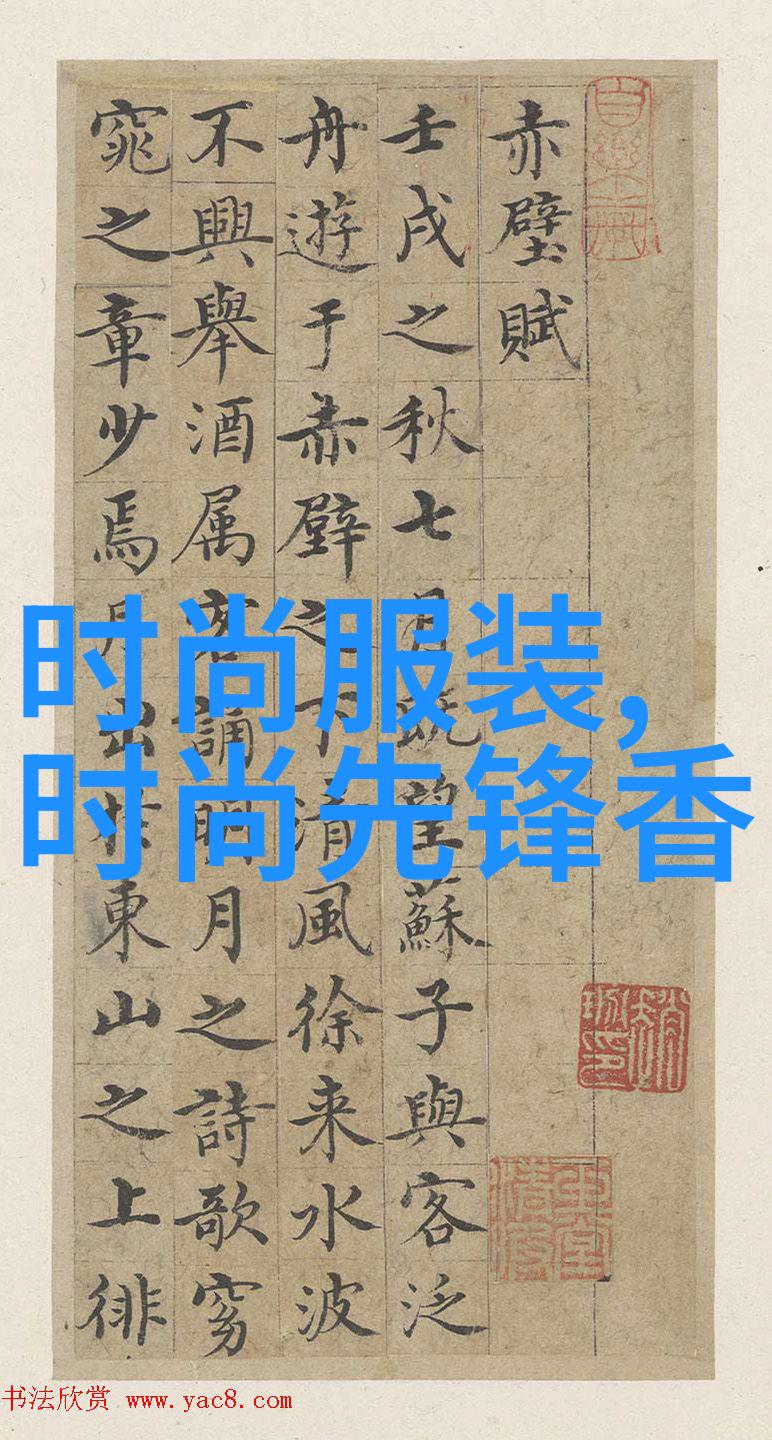 赤壁賦
壬戌之秋七月既望蘇子與客泛
舟遊于赤壁之下清風徐来水波
不興舉酒属客誦明月之詩歌窈
窕之章少焉月出於東山之上徘
时尚服装,
时尚先锋香
书法欣赏 www.yac8.com